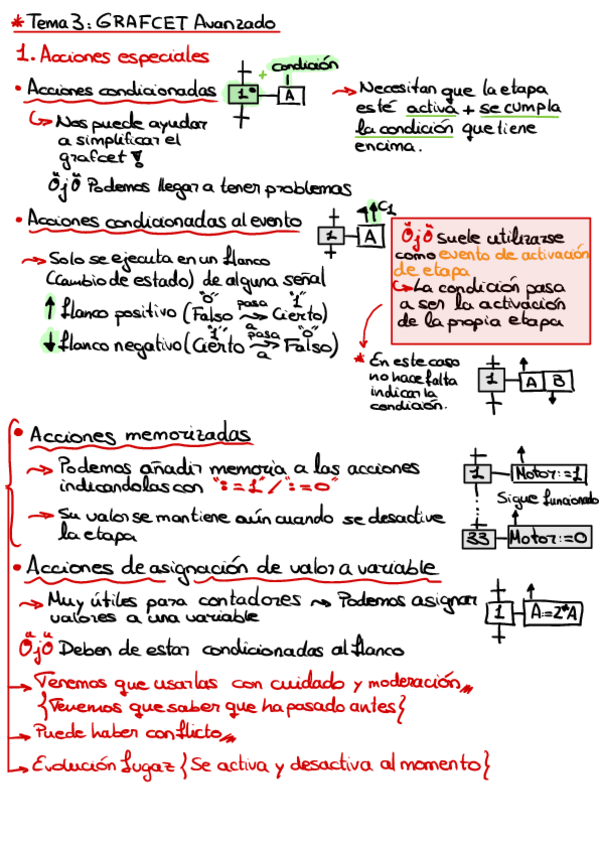 * Tema 3: GRAFCET Avanzado
1. Acciones especiales
• Acciones condicionadas
condición
+
1º
A
→ Necesitan que la etapa
esté activa + se cumpla
la condición que tiene
encima.
↳ Nos puede ayudar
a simplificar el
grafcet!
Ojo Podemos llegar a tener problemas
• Acciones condicionadas al evento
↑C1
1
A
→ Solo se ejecuta en un flanco
(cambio de estado) de alguna señal
↑ flanco positivo ("0" Falso pasa a "1" Cierto)
↓ flanco negativo ("1" Cierto pasa a "0" Falso)
Ojo suele utilizarse
como evento de activación
de etapa
↳ La condición pasa
a ser la activación
de la propia etapa
* En este caso
no hace falta
indicar la
condición.
1
A B
• Acciones memorizadas
→ Podemos añadir memoria a las acciones
indicandolas con ":=1" / ":=0"
→ Su valor se mantiene aún cuando se desactive
la etapa
1
Motor:=1
Sigue funcionado
33
Motor:=0
• Acciones de asignación de valor a variable
→ Muy útiles para contadores → Podemos asignar
valores a una variable
1
A:=2*A
Ojo Deben de estar condicionadas al flanco
→ Tenemos que usarlas con cuidado y moderación
{Tenemos que saber que ha pasado antes{
→ Puede haber conflicto
→ Evolución fugaz {Se activa y desactiva al momento}